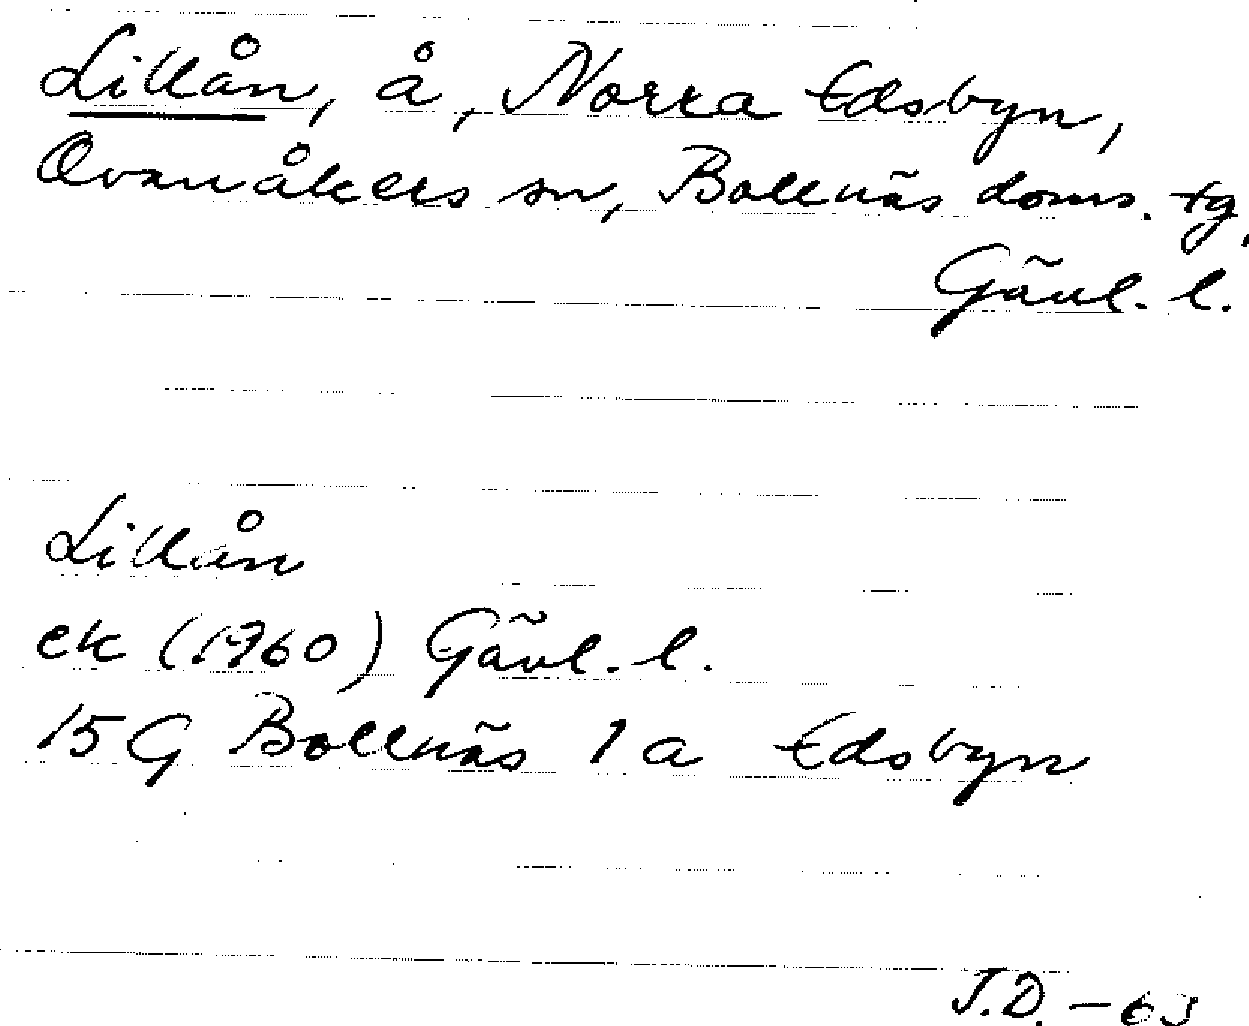 Lillån, å, Norra Edsbyn,
Ovanåkers sn, Bollnäs doms. tg,
Gävl. l.
Lillån
ek (1960) Gävl. l.
15 G Bollnäs 1 a Edsbyn
J.D. - 63